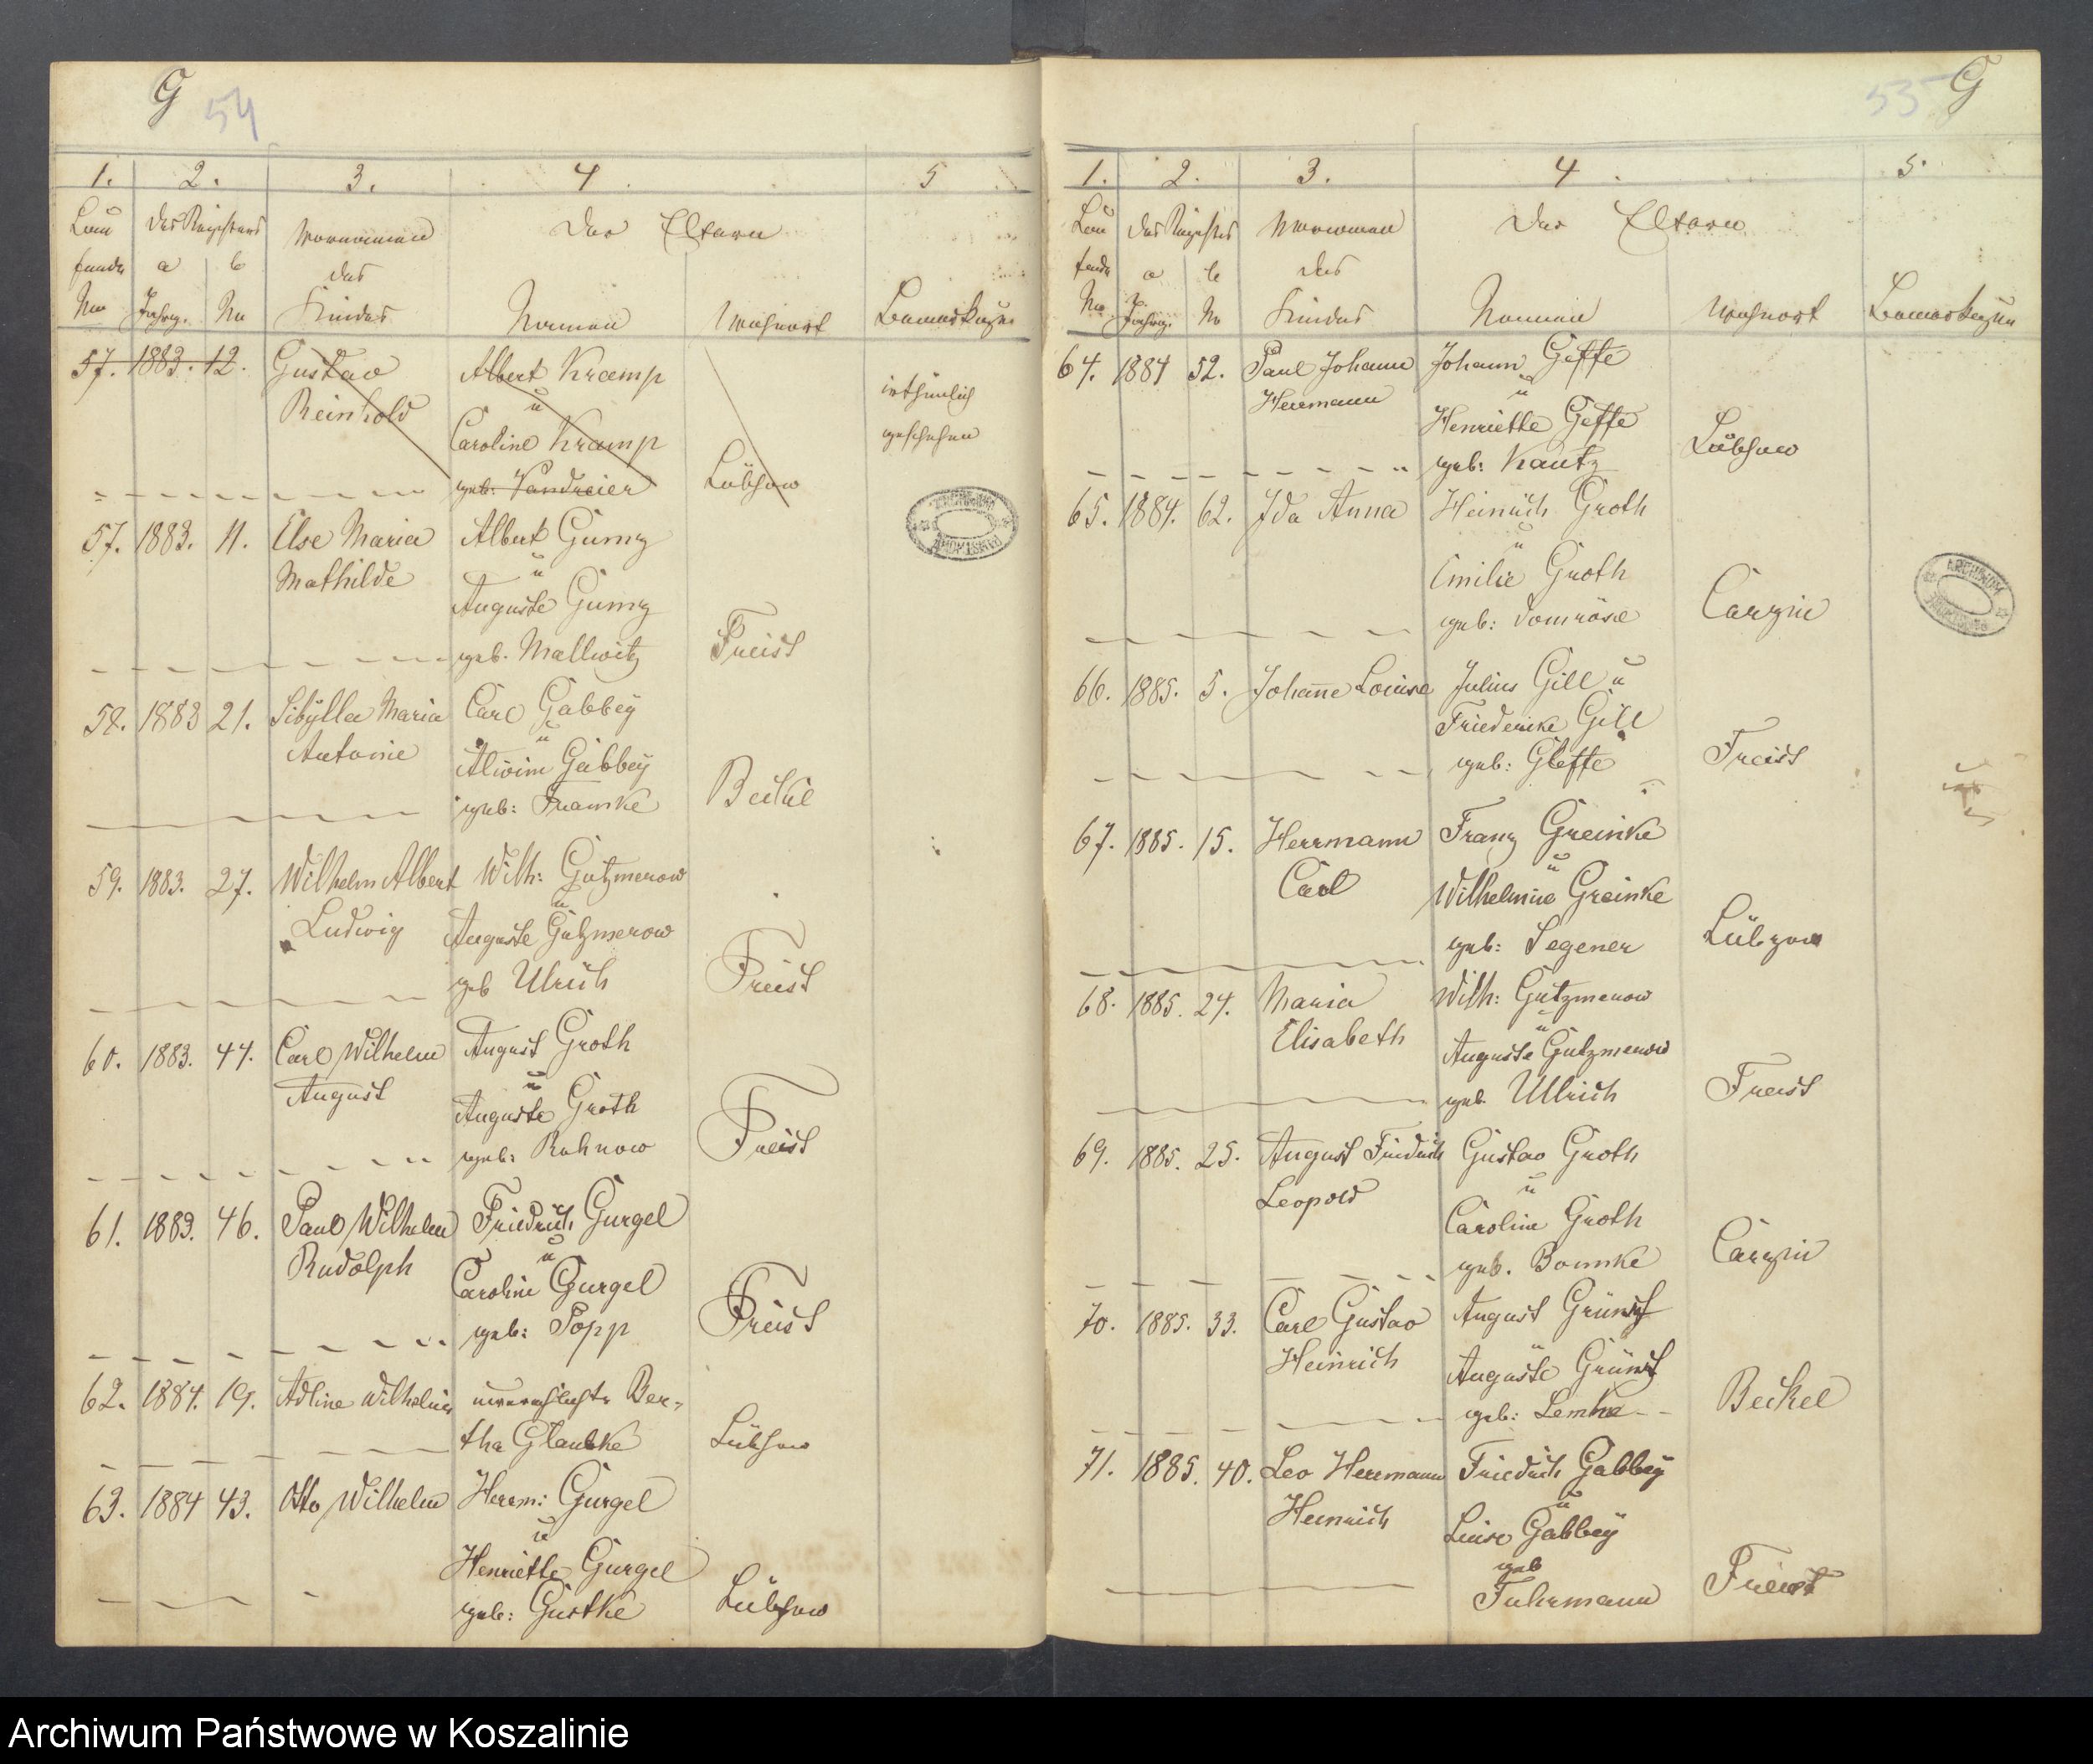 G 54
1. 2. 3. 4 5
Lau des Registers Vornamen Der Eltern
fende a b des
No Jahrg. No Kindes Namen Wohnort Bemerkungen
57. 1883. 12. Gustav Albert Kramp
Reinhold u irthümlich
Caroline Kramp geschehen
geb: Vandreier Lübzow
57. 1883. 11. Else Maria Albert Gumz
Mathilde u
Auguste Gumz
geb. Mallwitz Freist
58. 1883 21. Sibÿlla Maria Carl Gabbeÿ
Antonie u
Alwine Gabbeÿ
geb: Framke Beckel
59. 1883. 27. Wilhelm Albert Wilh: Gutzmerow
Ludwig u
Auguste Gutzmerow
geb Ulrich Freist
60. 1883. 44. Carl Wilhelm August Groth
August u
Auguste Groth
geb: Ruhnow Freist
61. 1883. 46. Paul Wilhelm Friedrich Gurgel
Rudolph u
Caroline Gurgel
geb: Popp Freist
62. 1884. 19. Adline Wilhelmine unverehlichte Ber-
tha Glaubke Lübzow
63. 1884 43. Otto Wilhelm Herrm: Gurgel
u
Henriette Gurgel
geb: Gustke Lübzow
55 G
1. 2. 3. 4 5.
Lau des Registers Vornamen Der Eltern
fende a b des
No Jahrg. No Kindes Namen Wohnort Bemerkungen
64. 1884 52. Paul Johann Johann Geffe
Herrmann u
Henriette Geffe
geb: Kautz Lübzow
65. 1884. 62. Ida Anna Heinrich Groth
u
Emilie Groth
geb: Domröse Carzin
66. 1885. 5. Johanne Louise Julius Gill u
Friederike Gill
geb: Gleffe Freist
67. 1885. 15. Herrmann Franz Greinke
Carl u
Wilhelmine Greinke
geb: Segener Lübzow
68. 1885. 24. Maria Wilh: Gutzmerow
Elisabeth u
Auguste Gutzmerow
geb. Ullrich Freist
69. 1885. 25. August Friedrich Gustav Groth
Leopold u
Caroline Groth
geb. Bomnke Carzin
70. 1885. 33. Carl Gustav August Grünst
Heinrich u
Auguste Grünst
geb: Lemke Beckel
71. 1885. 40. Leo Herrmann Friedrich Gabbeÿ
Heinrich u
Luise Gabbeÿ
geb
Fuhrmann Freist
ARCHIWUM
PAŃSTWOWE
Archiwum Państwowe w Koszalinie